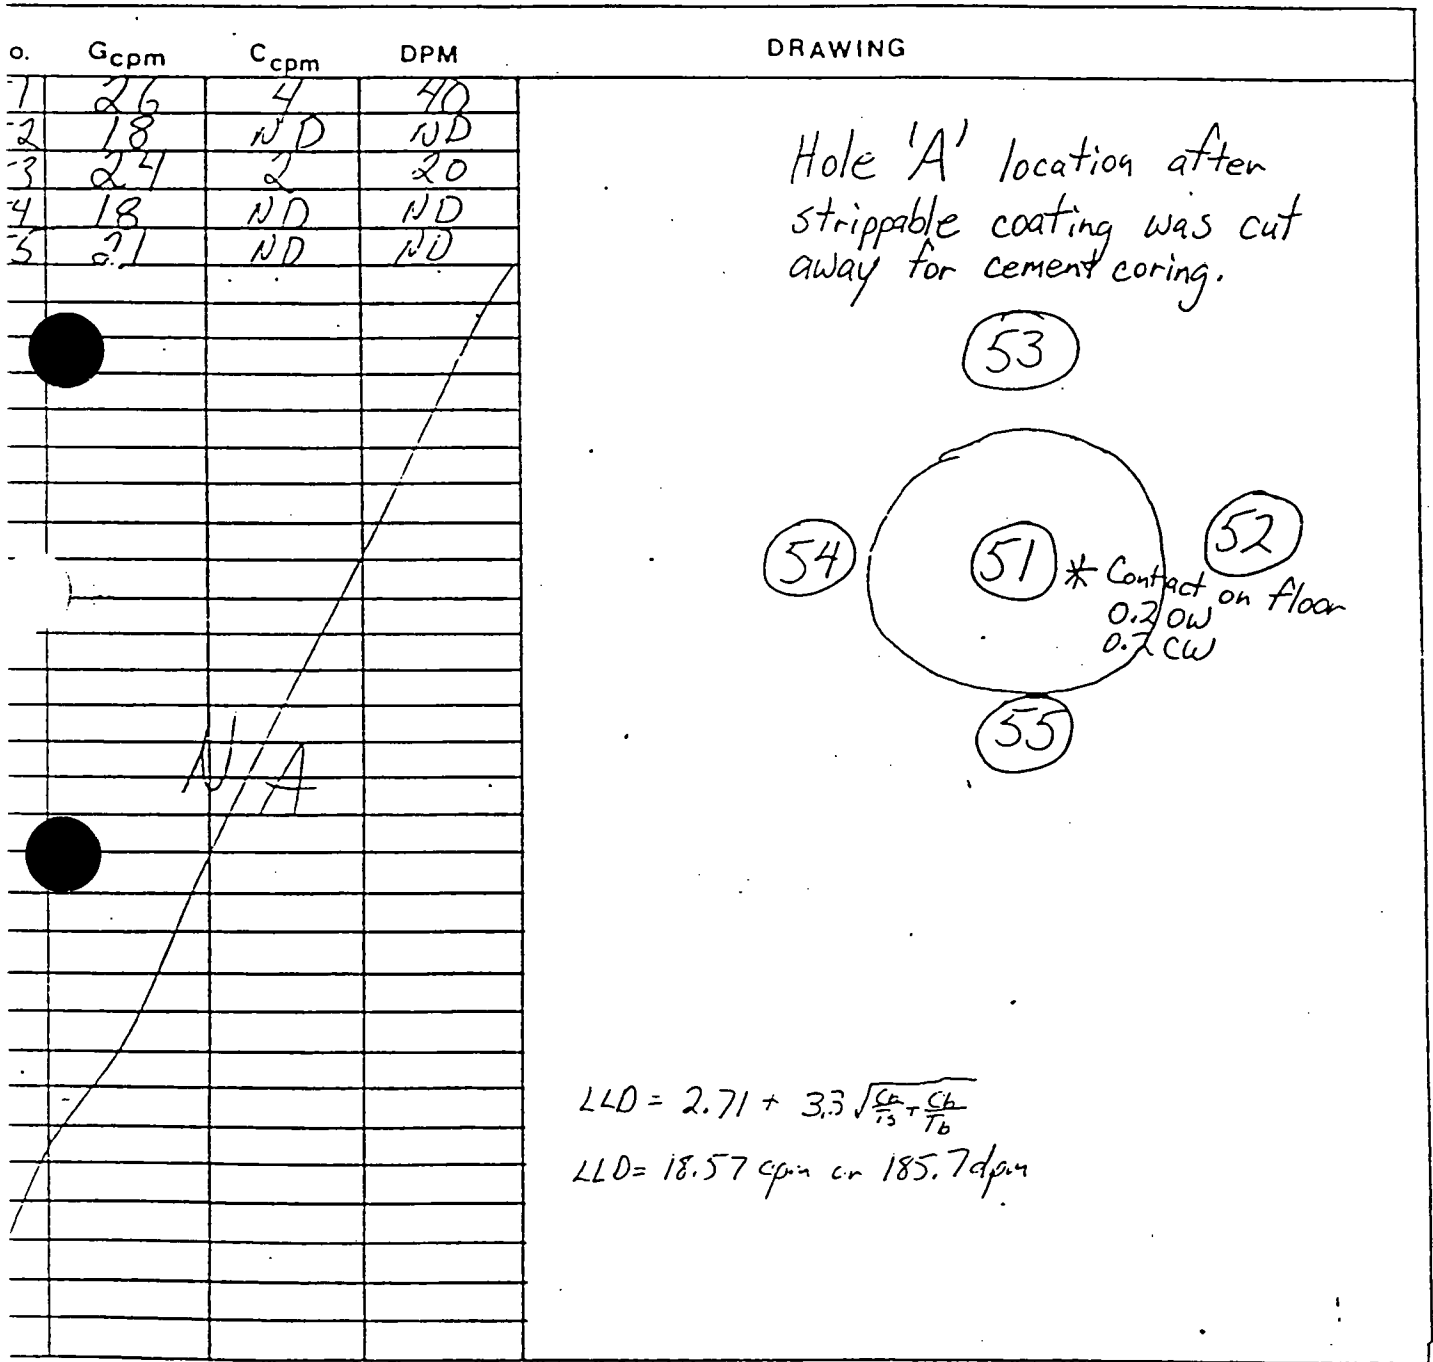 o. Gcpm Ccpm DPM DRAWING
-1 26 4 40
-2 18 ND ND
-3 24 2 20
-4 18 ND ND
-5 21 ND ND
N/A
Hole 'A' location after
strippable coating was cut
away for cement coring.
53
54 51 52
* Contact on floor
0.2 OW
0.2 CW
55
LLD = 2.71 + 3.3 √(Cb/Ts + Cb/Tb)
LLD = 18.57 cpm or 185.7 dpm